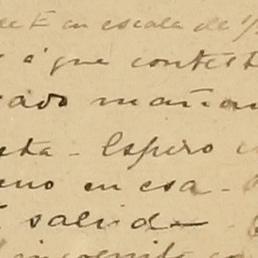 de E en escala de 1/
á que contest
ado mañan
sta - Espero
eno en esa -
salid